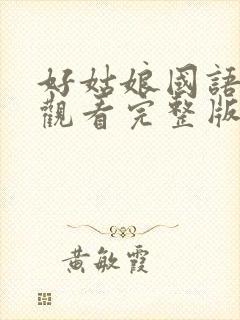 好姑娘國語
觀看完整版
黃敏霞